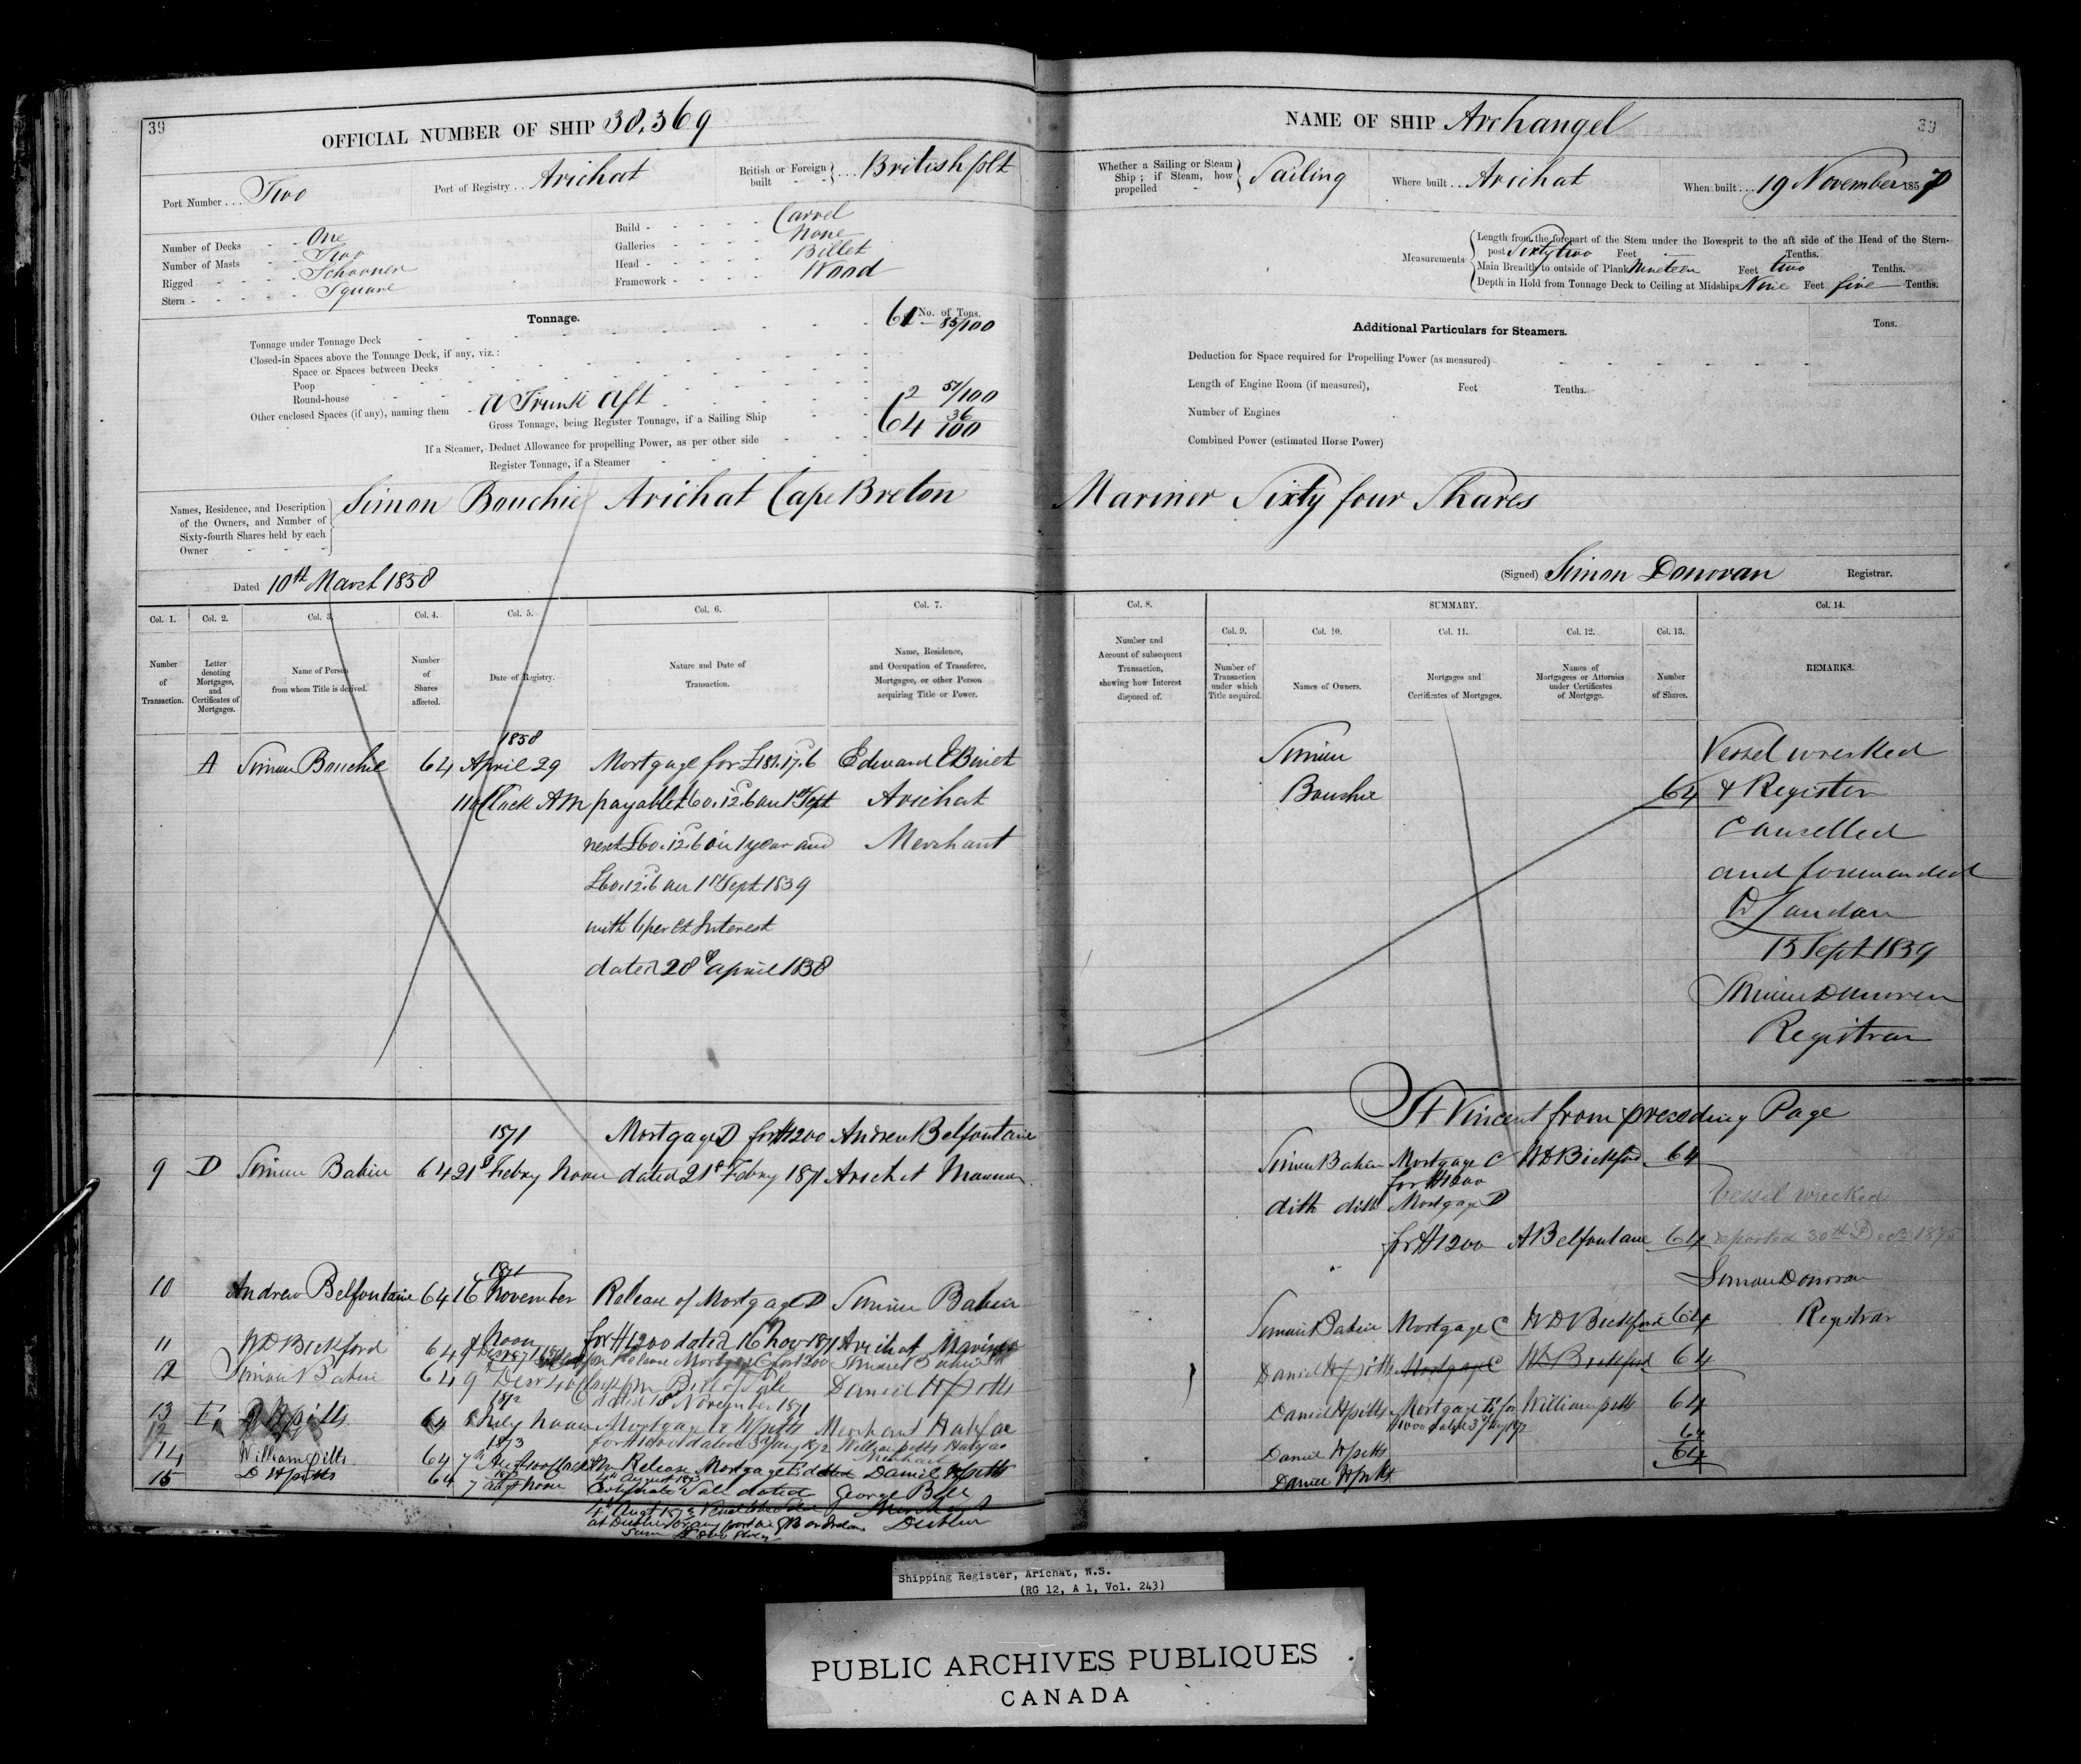 39
OFFICIAL NUMBER OF SHIP 38,369
Port Number . . . Two
Port of Registry . . Arichat
British or Foreign built - - } . . . British plt
Number of Decks - - One
Number of Masts - - Two
Rigged - - - - Schooner
Stern - - - - - Square
Build - - - - - Carvel
Galleries - - - - None
Head - - - - - Billet
Framework - - - - Wood
Tonnage.
No. of Tons.
Tonnage under Tonnage Deck - - 61 85/100
Closed-in Spaces above the Tonnage Deck, if any, viz. :
Space or Spaces between Decks
Poop
Round-house
Other enclosed Spaces (if any), naming them - A Trunk Aft 2 51/100
Gross Tonnage, being Register Tonnage, if a Sailing Ship 64 36/100
If a Steamer, Deduct Allowance for propelling Power, as per other side
Register Tonnage, if a Steamer
Names, Residence, and Description of the Owners, and Number of Sixty-fourth Shares held by each Owner - - }
Simon Bouchie Arichat Cape Breton
Dated 10th March 1858
Col. 1. Col. 2. Col. 3. Col. 4. Col. 5. Col. 6. Col. 7.
Number of Transaction.
Letter denoting Mortgages, and Certificates of Mortgages.
Name of Person from whom Title is derived.
Number of Shares affected.
Date of Registry.
Nature and Date of Transaction.
Name, Residence, and Occupation of Transferee, Mortgagee, or other Person acquiring Title or Power.
1858
A Simon Bouchie 64 April 29 Mortgage for £181.17.6
11 oClock AM payable £60.12.6 on 1st Sept Arichat
next £60.12.6 in 1 year and Merchant
£60.12.6 on 1st Sept 1859
with 6 per ct Interest
dated 28 April 1858
1871 Mortgage D for $1200 Andrew Belfontaine
9 D Simon Babin 64 21 Febry Noon dated 21st Febry 1871 Arichat Mariner
1871
10 Andrew Belfontaine 64 16 November Release of Mortgage D Simon Babin
Noon for $1200 dated 16 Nov 1871 Arichat Mariner
11 WD Bickford 64 Release Mortgage C for 1200 Simon Babin
12 Simon Babin 64 9 Decr Bill of Sale Daniel H Pitts
1872 dated 18 November 1871
13 E 64 Noon Mortgage to W Pitts Merchant Halifax
1873 William Pitts Halifax
14 William Pitts 64 7th Release Mortgage E Daniel H Pitts
15 D H Pitts 64 7 Noon Certificate Sale dated George Bell
4th Augt 1873
at Dublin
39
NAME OF SHIP Archangel
Whether a Sailing or Steam Ship ; if Steam, how propelled - } Sailing
Where built . . Arichat
When built . . . 19 November 1857
Measurements
Length from the forepart of the Stem under the Bowsprit to the aft side of the Head of the Stern-post Sixty two Feet Tenths.
Main Breadth to outside of Plank Nineteen Feet two Tenths.
Depth in Hold from Tonnage Deck to Ceiling at Midships Nine Feet five Tenths.
Additional Particulars for Steamers.
Tons.
Deduction for Space required for Propelling Power (as measured)
Length of Engine Room (if measured), Feet Tenths.
Number of Engines
Combined Power (estimated Horse Power)
Mariner Sixty four Shares
(Signed) Simon Donovan Registrar.
Col. 8. SUMMARY. Col. 14.
Col. 9. Col. 10. Col. 11. Col. 12. Col. 13.
Number and Account of subsequent Transaction, showing how Interest disposed of.
Number of Transaction under which Title acquired.
Names of Owners.
Mortgages and Certificates of Mortgages.
Names of Mortgagees or Attornies under Certificates of Mortgage.
Number of Shares.
REMARKS.
Simon
Bouchie 64
Vessel wrecked
& Register
Cancelled
and forwarded
to London
15 Sept 1859
Simon Donovan
Registrar
St Vincent from preceding Page
Simon Babin Mortgage C WD Bickford 64
for $1200
ditto ditto Mortgage D
for $1200 A Belfontaine 64
Vessel wrecked
reported 30th Decr 1875
Simon Donovan
Registrar
Simon Babin Mortgage C WD Bickford 64
Daniel H Pitts Mortgage C WD Bickford 64
Daniel H Pitts Mortgage E for William Pitts 64
64
Daniel H Pitts 64
Daniel H Pitts
Shipping Register, Arichat, N.S.
(RG 12, A 1, Vol. 243)
PUBLIC ARCHIVES PUBLIQUES
CANADA